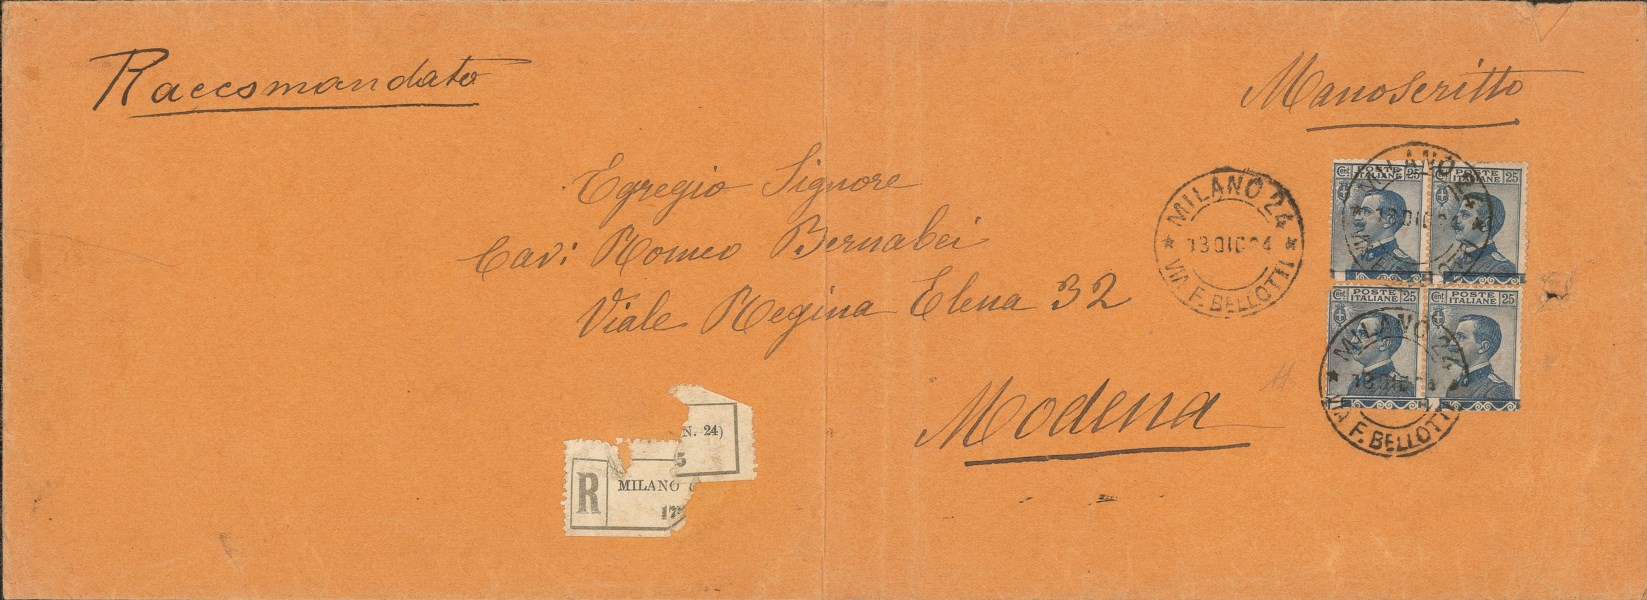 Raccomandato
Manoscritto
Egregio Signore
Cav: Romeo Bernabei
Viale Regina Elena 32
Modena
MILANO 24
13 DIC 24
VIA F. BELLOTTI
Cent POSTE ITALIANE 25
Cent POSTE ITALIANE 25
MILANO 24
13 DIC 24
Cent POSTE ITALIANE 25
Cent POSTE ITALIANE 25
MILANO 24
13 DIC 24
VIA F. BELLOTTI
N. 24)
5
R
MILANO (
17